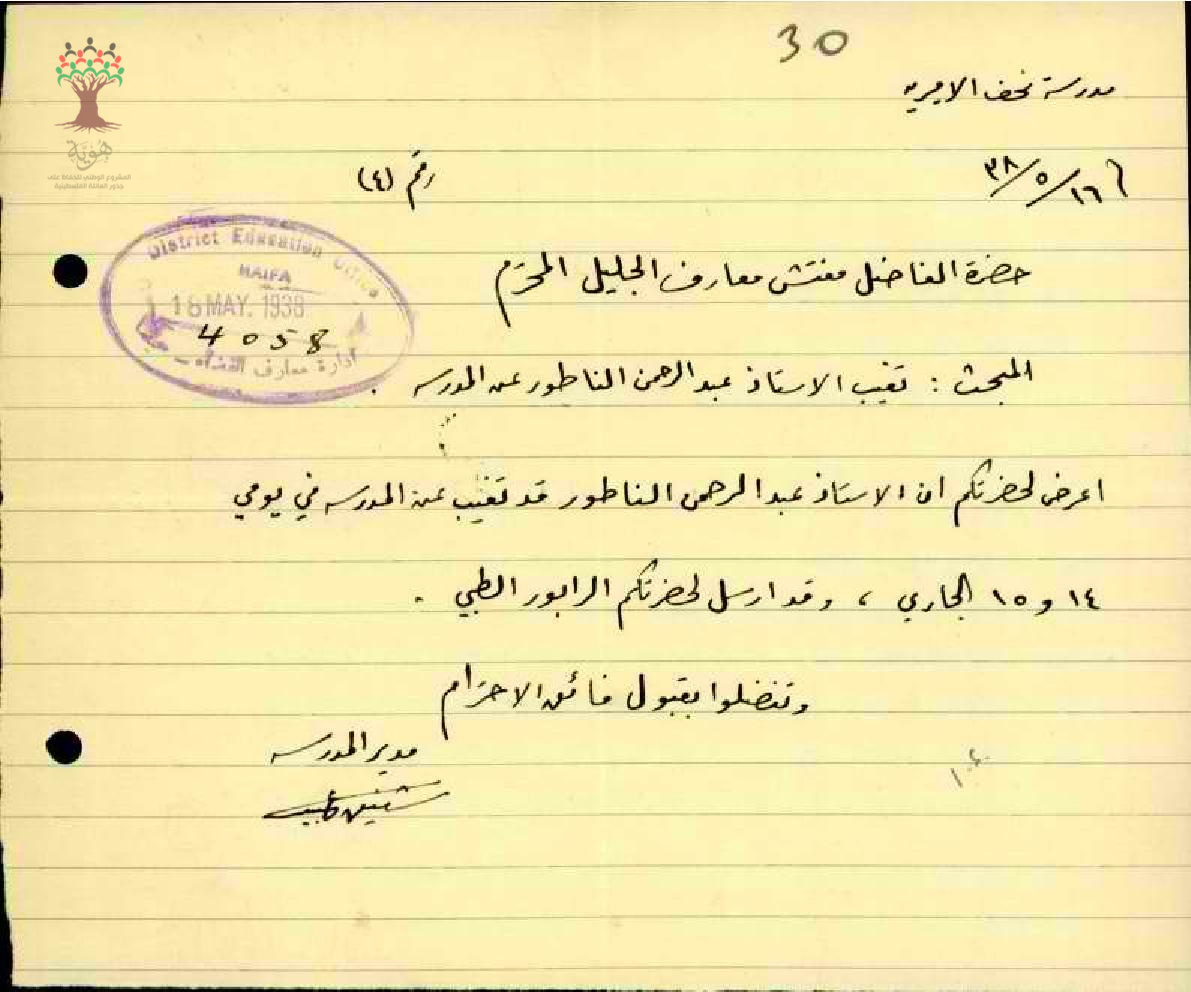 30
مدرسة نحف الاميريه
١٦/٥/٣٨
رقم (٤)
هوية
المشروع الوطني للحفاظ على
جذور العائلة الفلسطينية
District Education Office
HAIFA
18 MAY. 1938
4058
ادارة معارف القضاء - حيفا
حضرة الفاضل مفتش معارف الجليل المحترم
المبحث : تغيب الاستاذ عبد الرحمن الناطور عن المدرسه .
اعرض لحضرتكم ان الاستاذ عبد الرحمن الناطور قد تغيب عن المدرسه في يومي
١٤ و ١٥ الجاري ، وقد ارسل لحضرتكم الرابور الطبي .
وتفضلوا بقبول فائق الاحترام
مدير المدرسه